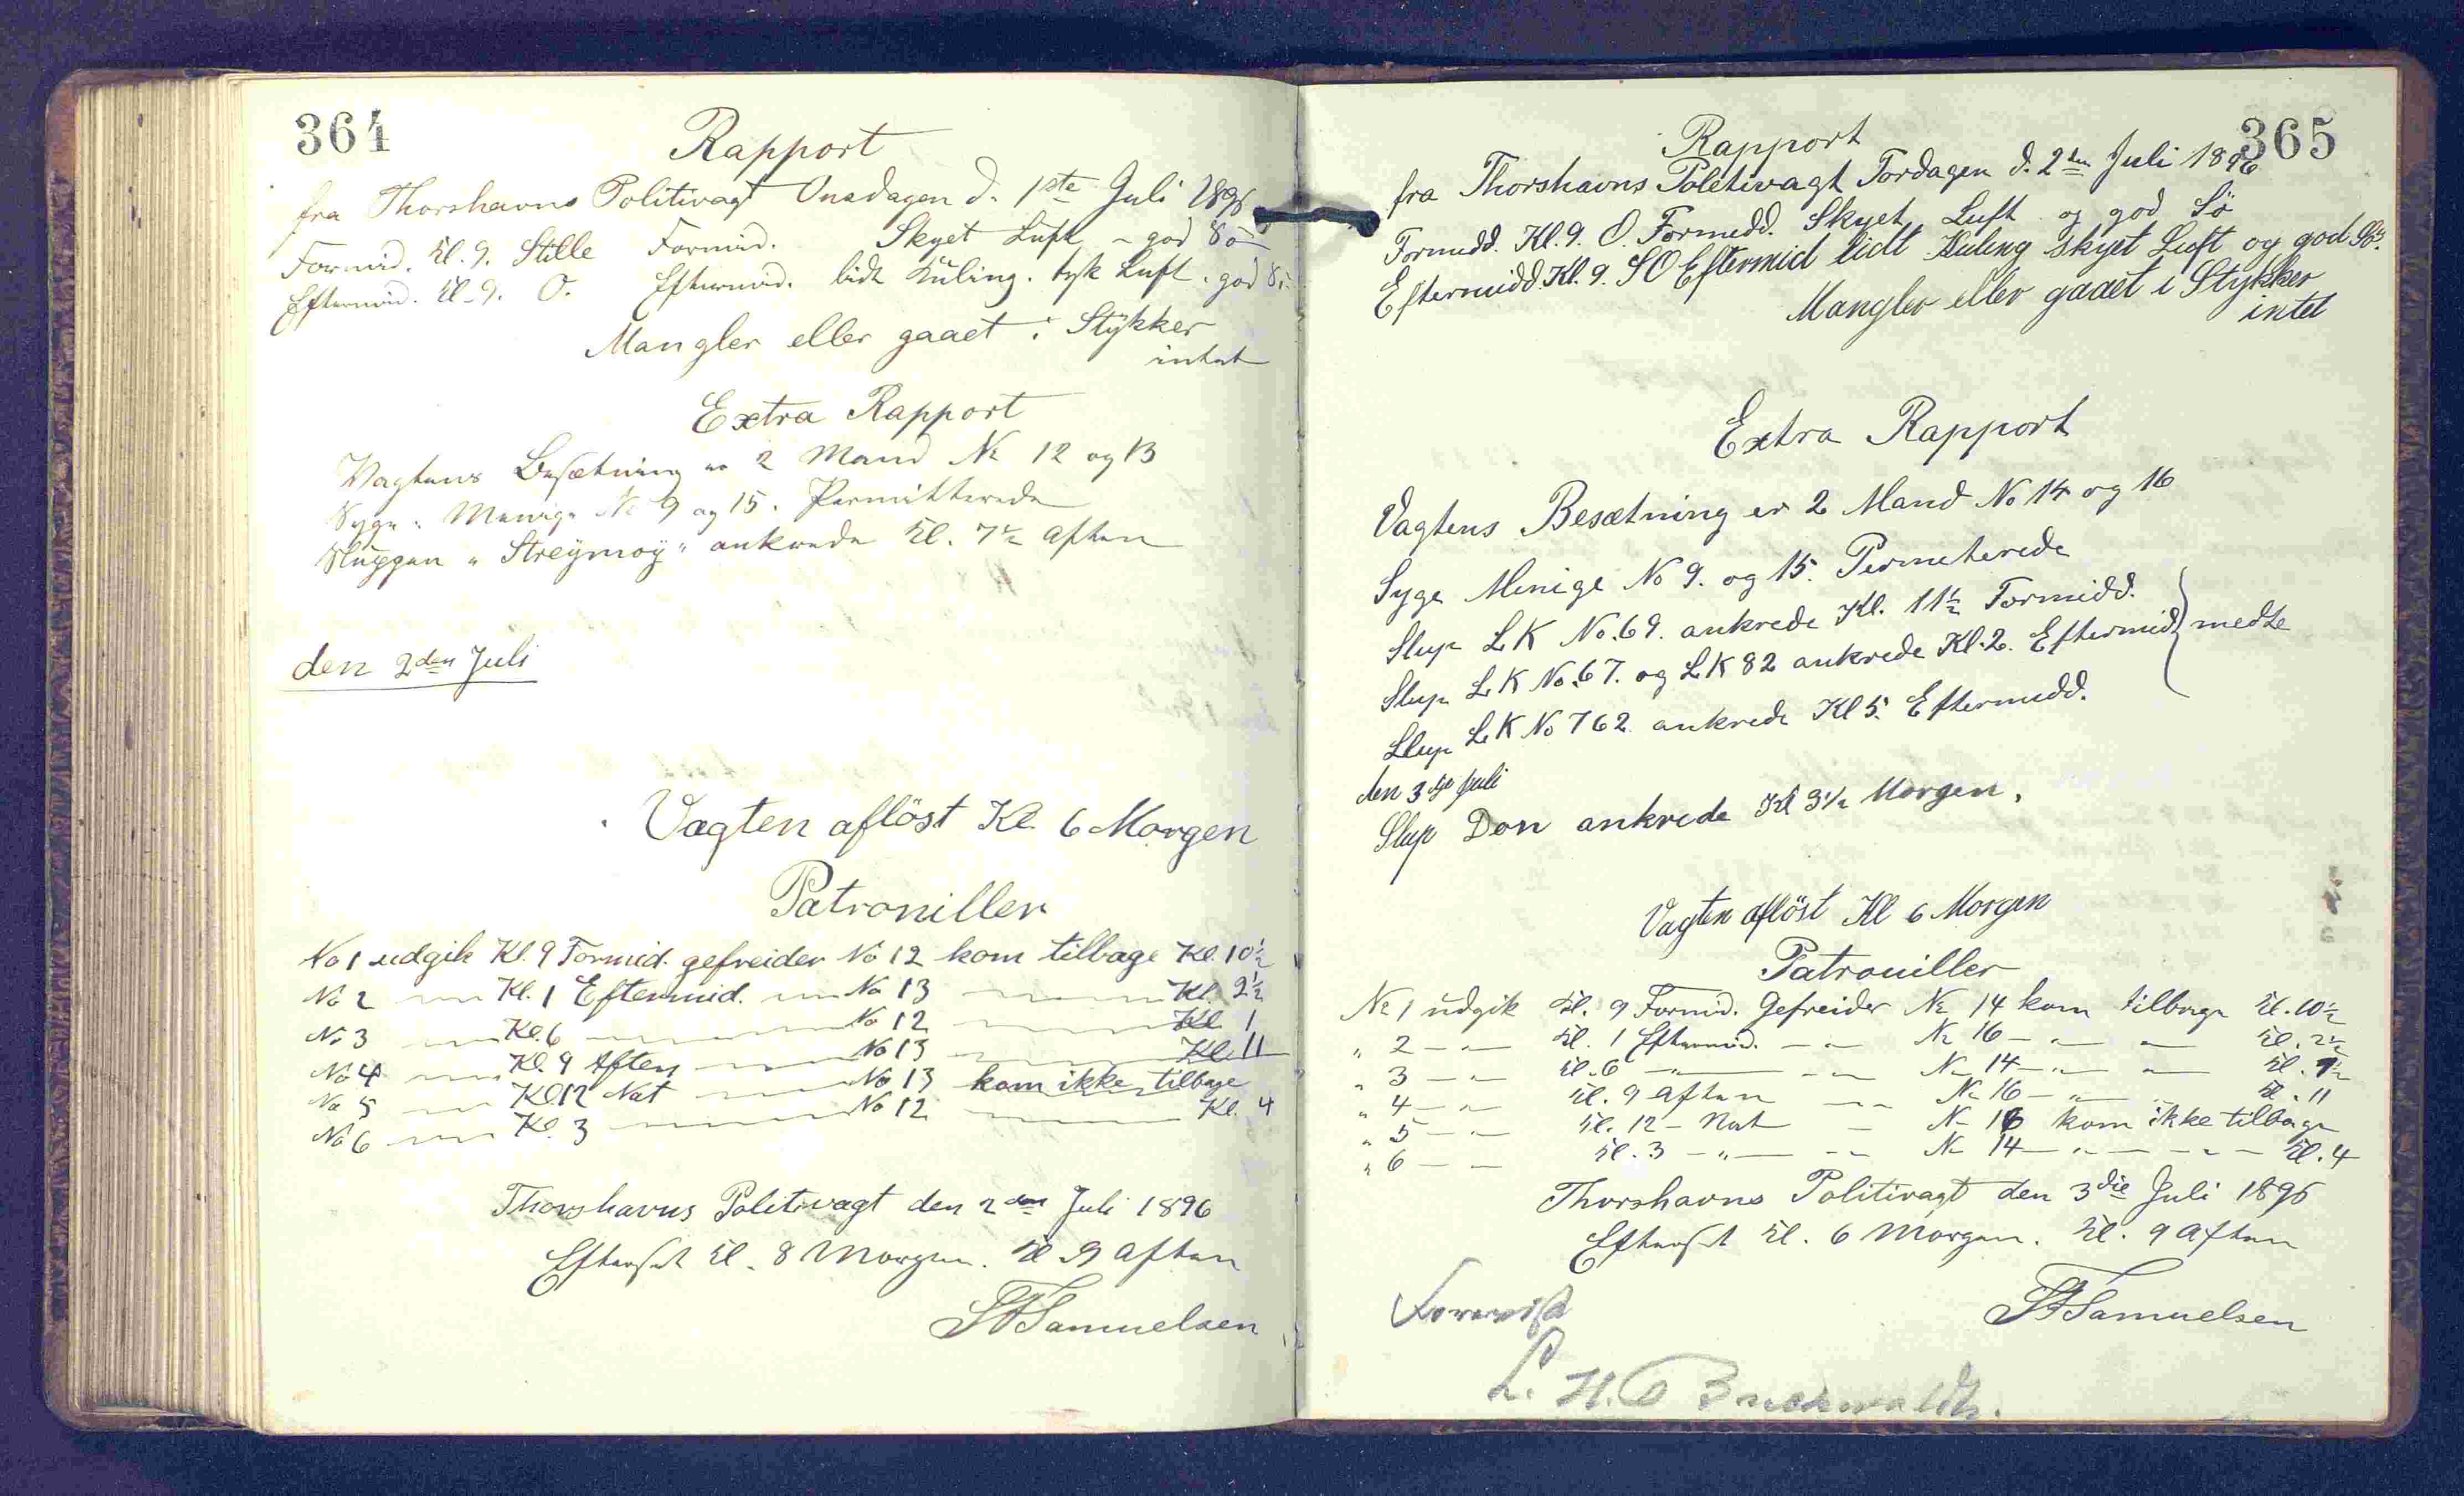 364
Rapport
fra Thorshavns Politivagt Onsdagen d. 1ste Juli 1896
Formid. Kl. 9. Stille Formid. Skyet Luft - god Sö
Eftermid. Kl. 9. O. Eftermid. lidt Kuling. tyk Luft. god Sö
Mangler eller gaaet i Stykker
intet
Extra Rapport
Vagtens Besætning er 2 Mand No 12 og 13
Syge: Menige No 9 og 15. Permitterede
Sluppen "Streymoÿ" ankrede Kl. 7½ Aften
den 2den Juli
Vagten aflöst Kl. 6 Morgen
Patrouiller
No 1 udgik Kl. 9 Formid. gefreider No 12 kom tilbage Kl. 10½
No 2 — Kl. 1 Eftermid. — No 13 — Kl. 2½
No 3 — Kl. 6 — No 12 — Kl. 1
No 4 — Kl. 9 Aften — No 13 — Kl. 11
No 5 — Kl. 12 Nat — No 13 kom ikke tilbage
No 6 — Kl. 3 — No 12 — Kl. 4
Thorshavns Politivagt den 2den Juli 1896
Efterset Kl. 8 Morgen. Kl. 9 Aften
Samuelsen
365
Rapport
fra Thorshavns Poletivagt Tordagen d. 2den Juli 1896
Formidd. Kl. 9. O. Formidd. Skyet Luft og god Sö
Eftermidd. Kl. 9. SO Eftermid lidt Kuling skyet Luft og god Sö.
Mangler eller gaaet i Stykker
intet
Extra Rapport
Vagtens Besætning er 2 Mand No 14 og 16
Syge Menige No 9. og 15. Permeterede
Slup LK No. 69. ankrede Kl. 11½ Formidd.
Slup LK No. 67. og LK 82 ankrede Kl. 2. Eftermid. } medte
Slup LK No 762 ankrede Kl 5. Eftermidd.
den 3die Juli
Slup Don ankrede Kl 3½ Morgen.
Vagten aflöst Kl 6 Morgen
Patrouiller
No 1 udgik Kl. 9 Formid. Gefreider No 14 kom tilbage Kl. 10½
" 2 — " — Kl. 1 Eftermid. — " — No 16 — " — Kl. 2½
" 3 — " — Kl. 6 — " — No 14 — " — Kl. 7½
" 4 — " — Kl. 9 Aften — " — No 16 — " — Kl. 11
" 5 — " — Kl. 12 — Nat — No 16 kom ikke tilbage
" 6 — — Kl. 3 — " — No 14 — " — Kl. 4
Thorshavns Politivagt den 3die Juli 1896
Efterset Kl. 6 Morgen. Kl. 9 Aften
Samuelsen
Forevist